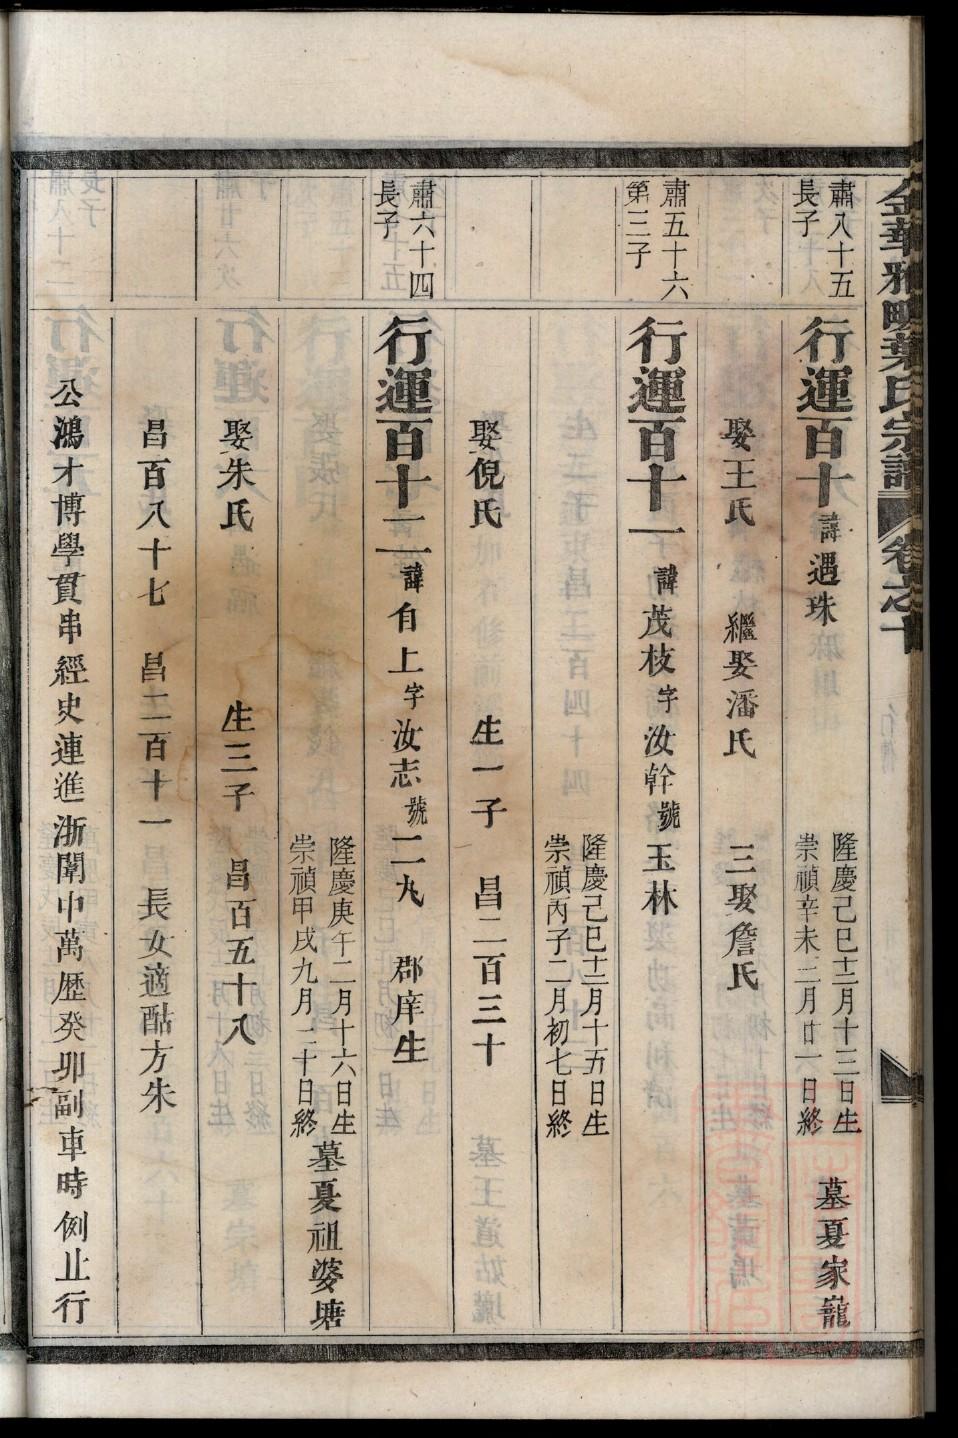 金華雅畈葉氏宗譜 卷之十
肅八十五
長子
行運百十 諱遇珠
隆慶己巳十二月十三日生
崇禎辛未三月廿六日終
墓夏家巃
娶王氏 繼娶潘氏 三娶詹氏
肅五十六
第三子
行運百十一 諱茂枝 字汝幹 號玉林
隆慶己巳十二月十五日生
崇禎丙子二月初七日終
娶倪氏 生一子 昌二百三十
肅六十四
長子
行運百十二 諱自上 字汝志 號二九 郡庠生
隆慶庚午二月十六日生
崇禎甲戌九月二十日終
墓夏祖婆塘
娶朱氏 生三子 昌百五十八
昌百八十七 昌二百十一 長女適酤方朱
公鴻才博學貫串經史連進浙闈中萬歷癸卯副車時例止行